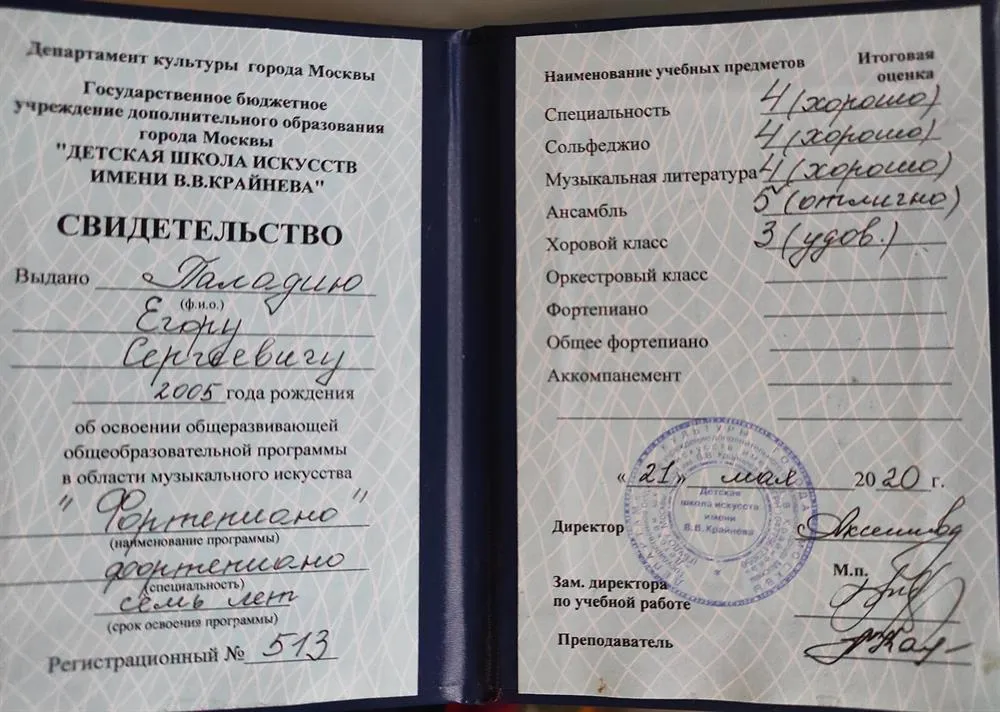 Департамент культуры города Москвы
Государственное бюджетное
учреждение дополнительного образования
города Москвы
"ДЕТСКАЯ ШКОЛА ИСКУССТВ
ИМЕНИ В.В.КРАЙНЕВА"
СВИДЕТЕЛЬСТВО
Выдано Паладию
(ф.и.о.)
Егору
Сергеевичу
2005 года рождения
об освоении общеразвивающей
общеобразовательной программы
в области музыкального искусства
"Фортепиано"
(наименование программы)
фортепиано
(специальность)
семь лет
(срок освоения программы)
Регистрационный № 513
Наименование учебных предметов Итоговая
оценка
Специальность 4 (хорошо)
Сольфеджио 4 (хорошо)
Музыкальная литература 4 (хорошо)
Ансамбль 5 (отлично)
Хоровой класс 3 (удов.)
Оркестровый класс
Фортепиано
Общее фортепиано
Аккомпанемент
«21» мая 2020 г.
Детская
школа искусств
имени
В.В.Крайнева
Директор
М.п.
Зам. директора
по учебной работе
Преподаватель